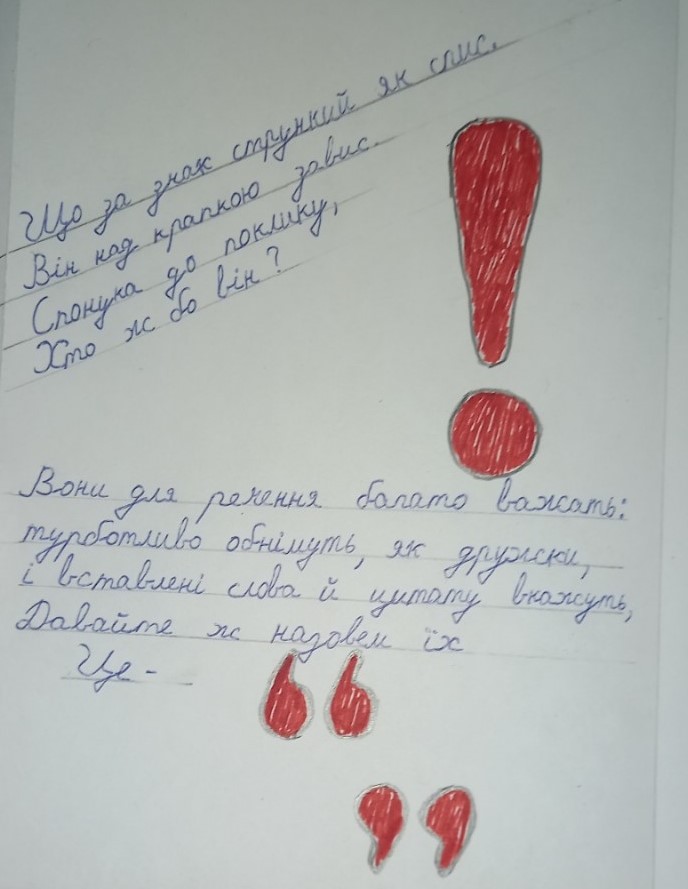 Що за знак стрункий як спис.
Він над крапкою завис.
Спонука до поклику,
Хто ж бо він?
!
Вони для речення багато важать:
турботливо обнімуть, як дружки,
і вставлені слова й цитату вкажуть,
Давайте ж назовем їх
Це -
“ ”